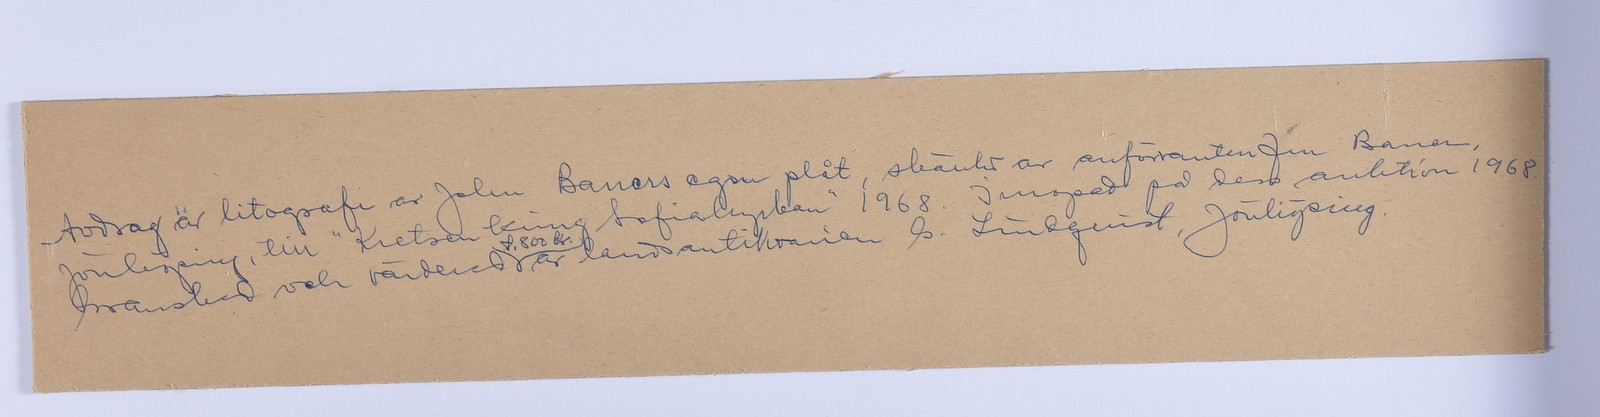 Avdrag är litografi av John Bauers egen plåt, skänkt av anförvanten Jon Bauer,
Jönköping, till "Kretsen kring Sofiakyrkan" 1968. Inropad på dess auktion 1968.
Granskad och värderad t. 800 kr. av landsantikvarien G. Lindquist, Jönköping.